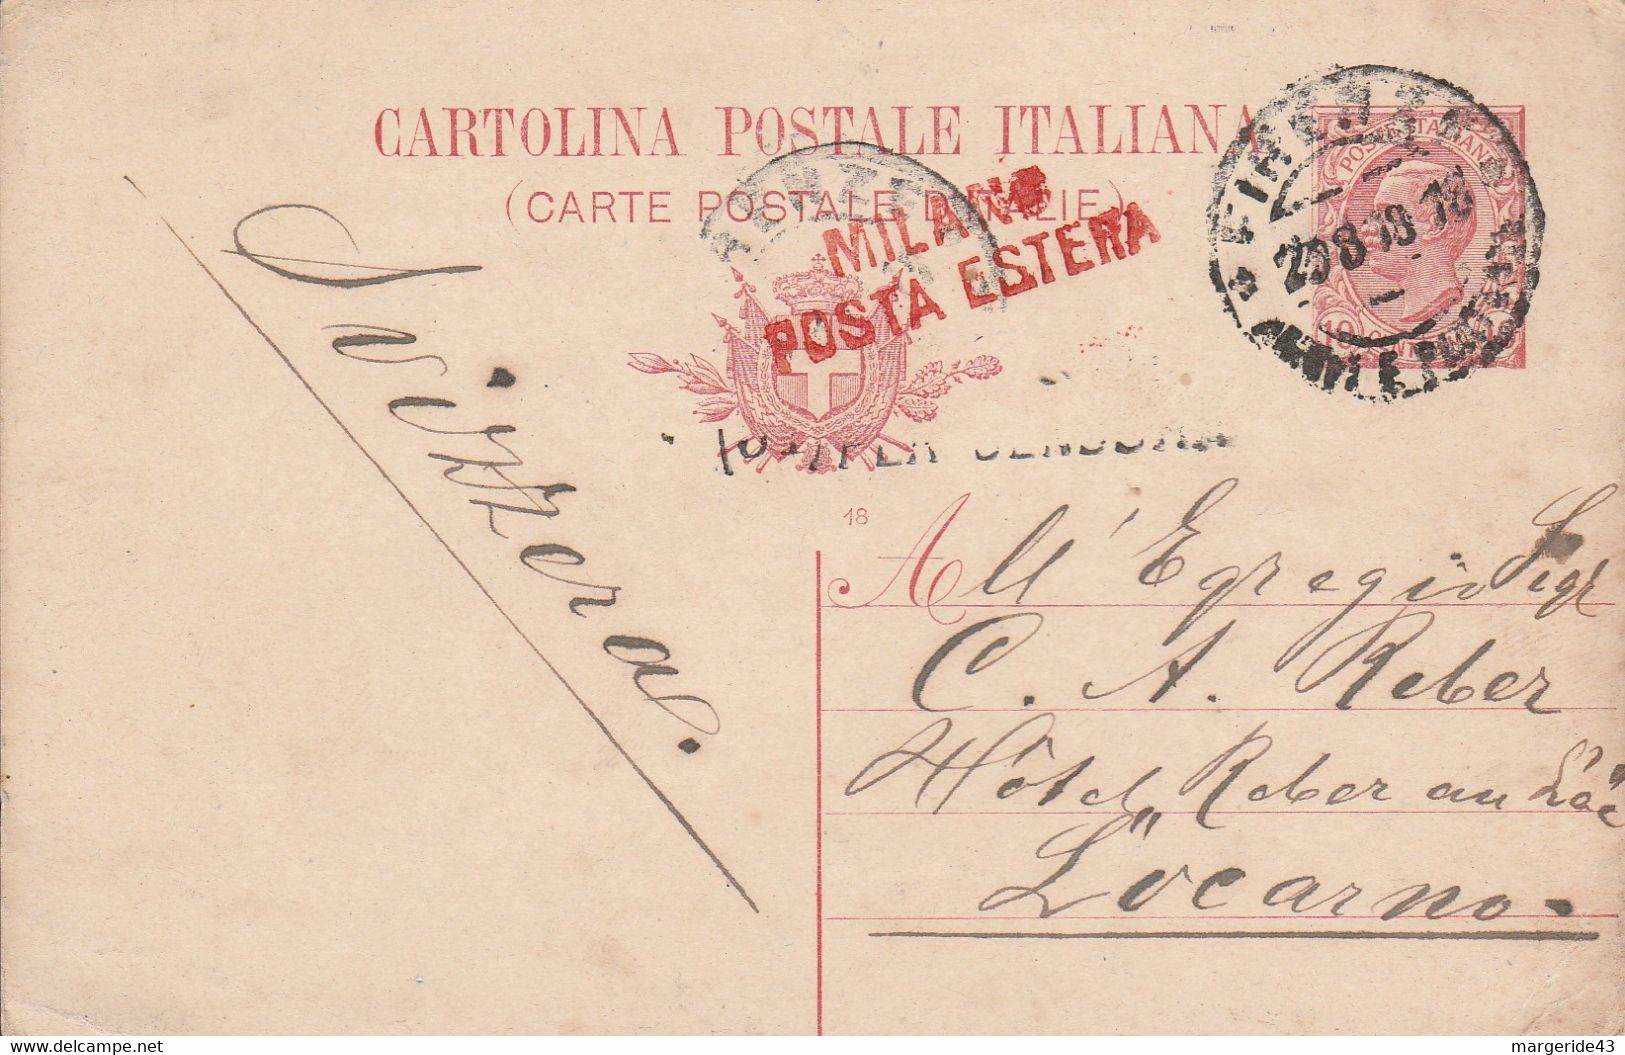 CARTOLINA POSTALE ITALIANA
(CARTE POSTALE D'ITALIE)
MILANO
POSTA ESTERA
FIRENZE
POSTE ITALIANE
PER CENSURA
18
Svizzera.
All'Egregio Sigr
C. A. Reber
Hôtel Reber au Lac
Locarno.
www.delcampe.net
margeride43